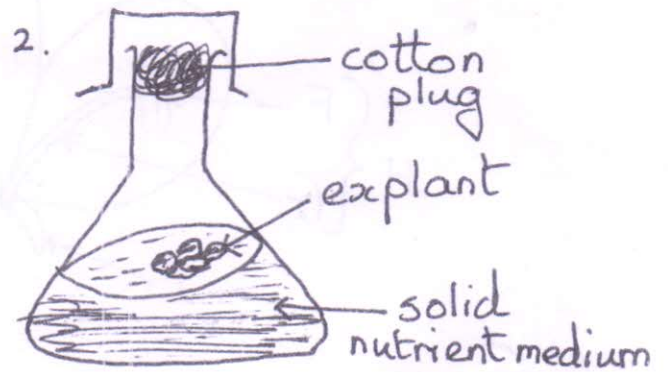 2.
cotton
plug
explant
solid
nutrient medium